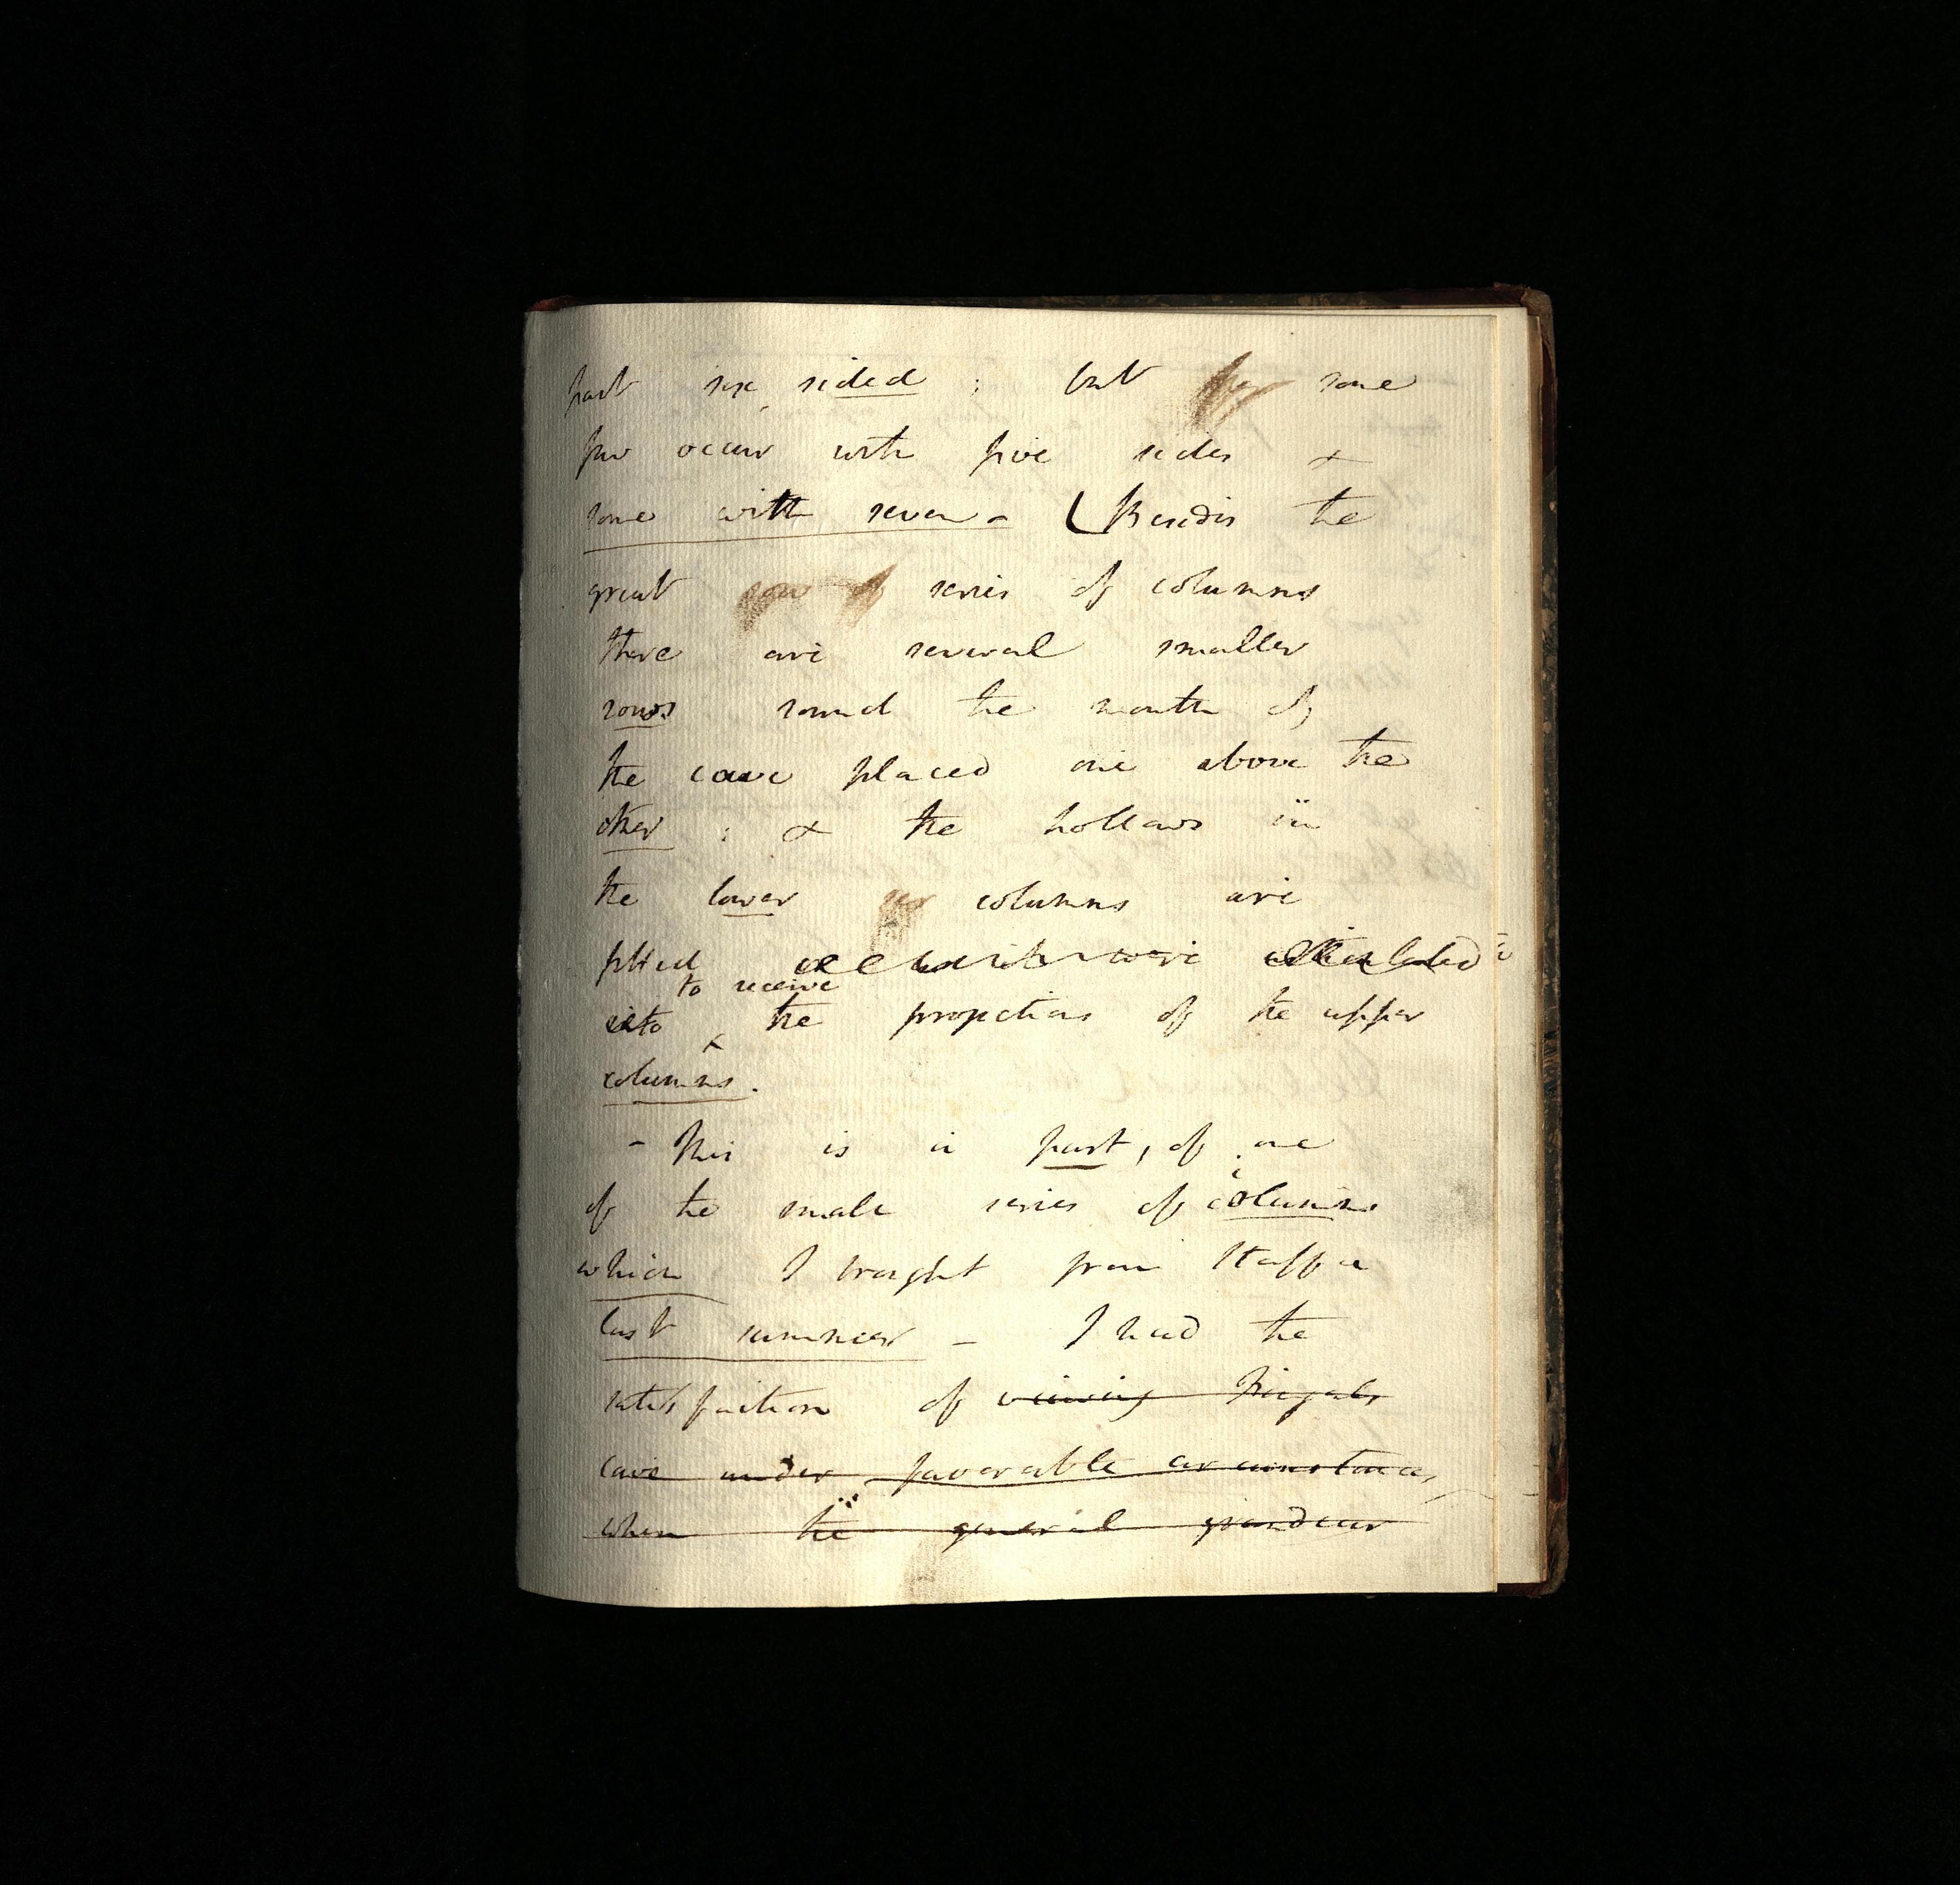 part six, sided : but few some
few occur with five sides &
some with seven - ( Besides the
great row of series of columns
there are several smaller
rows round the mouth of
the cave placed one above the
other : & the hollows in
the lower columns are
fitted
to receive
into ^ the projections of the upper
columns.
- This is a part, of one
of the small series of columns
which I brought from Staffa
last summer - I had the
satisfaction of viewing Fingals
cave under favorable circumstances,
when the general grandeur